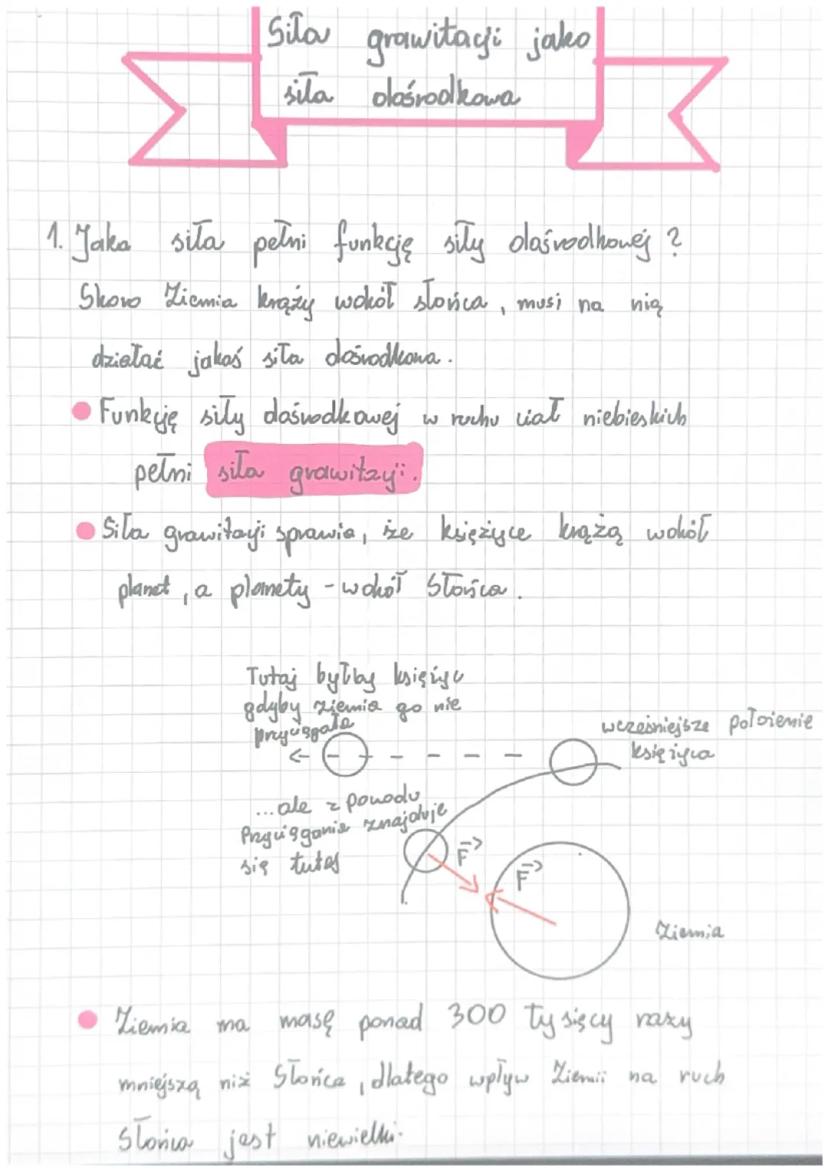 Siła grawitacji jako
siła dośrodkowa
1. Jaka siła pełni funkcję siły dośrodkowej ?
Skoro Ziemia krąży wokół słońca, musi na nią
działać jakaś siła dośrodkowa.
Funkcję siły dośrodkowej w ruchu ciał niebieskich
pełni siła grawitzyji.
Siła grawitacji sprawia, że księżyce krążą wokół
planet, a planety - wokół Słońca.
Tutaj byłby księżyc
gdyby ziemia go nie
przyciągała
wcześniejsze położenie
księżyca
...ale z powodu
Przyciągania znajduje
się tutaj
F
F
Ziemia
Ziemia ma masę ponad 300 tysięcy razy
mniejszą niż Słońca, dlatego wpływ Ziemii na ruch
Słońca jest niewielki.